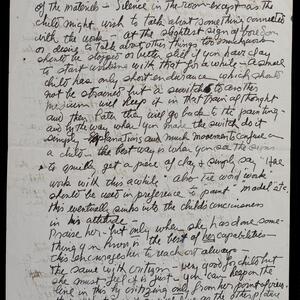 of the materials - Silence in the room - except as the
child might wish to talk about something connected
with the work - at the slightest sign of boredom
or desire to talk about other things the
should be stopped or better still if you have clay
to start working with that for a while - a small
child has only short endurance which should
not be strained but a switch to another
medium will keep it in that train of thought
and they later they will go back to the painting -
and by the way when you make the switch do it
simply. Explanations and much movement confuse
a child - the best way is when you see the signs
to quietly get a piece of clay & simply say "
work with this awhile." Also the word work
should be used in preference to paint model etc.
this eventually sinks into the child's consciousness
in his attitude -
Praise her - but only when she has done some-
thing you know is the best of her capabilities -
this encourages her to reach out always -
The same with criticism - very good for child but
she must feel it is just - you can deepen the
line in this by criticizing only from her point of view.
as the other place